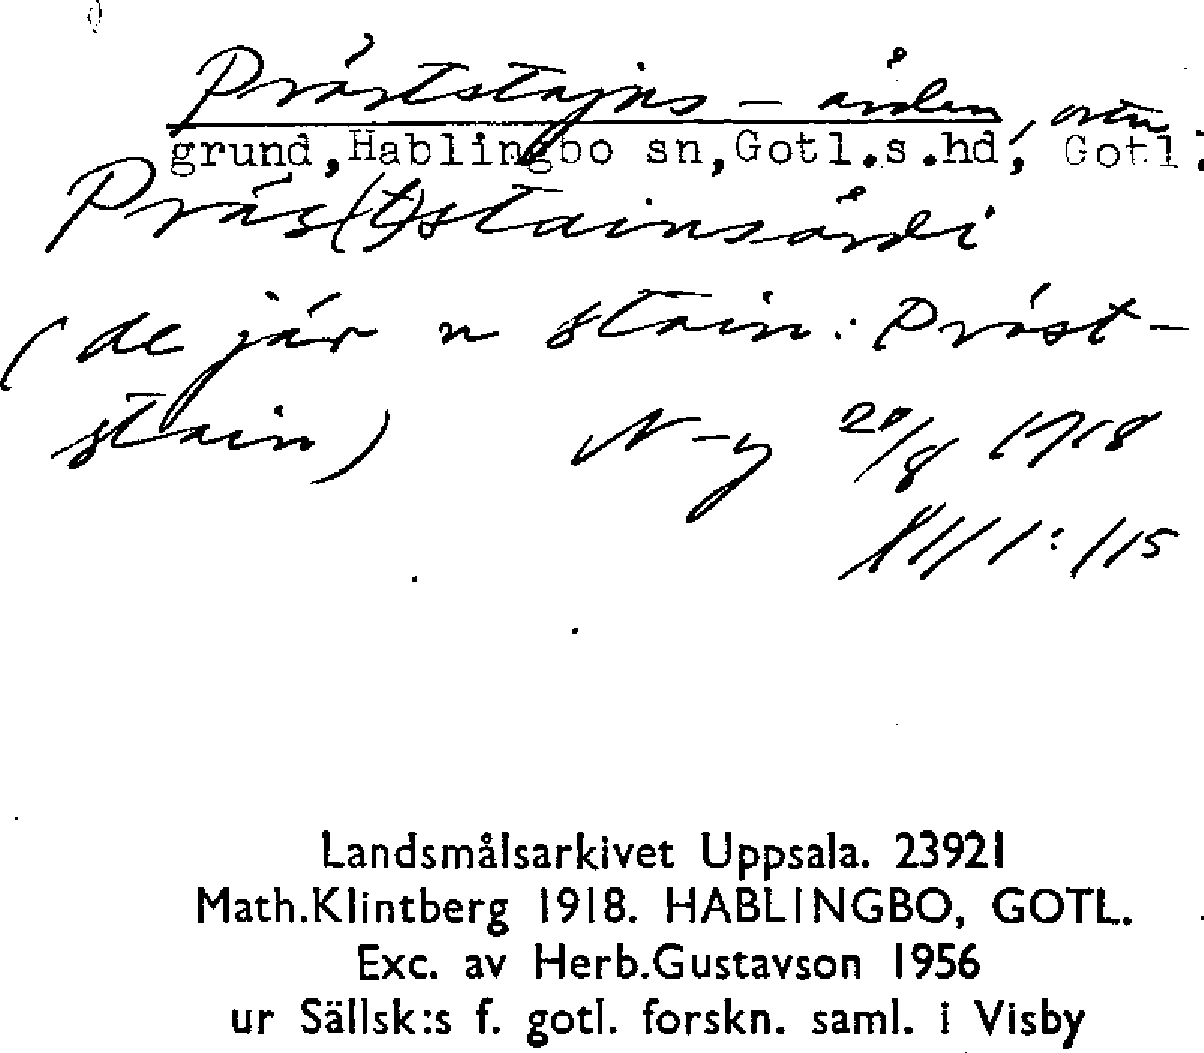 Präststajns-ården,
grund, Hablingbo sn, Gotl.s.hd, Gotl.
Präs(t)stainsårdi
(de jär n stain: Präst-
stain) N-y 20/8 1918
1:115
Landsmålsarkivet Uppsala. 23921
Math.Klintberg 1918. HABLINGBO, GOTL.
Exc. av Herb.Gustavson 1956
ur Sällsk:s f. gotl. forskn. saml. i Visby